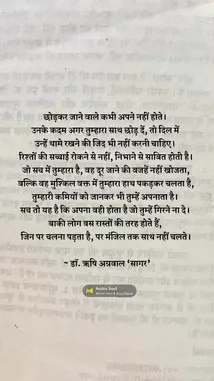 छोड़कर जाने वाले कभी अपने नहीं होते।
उनके कदम अगर तुम्हारा साथ छोड़ दें, तो दिल में
उन्हें थामे रखने की जिद भी नहीं करनी चाहिए।
रिश्तों की सच्चाई रोकने से नहीं, निभाने से साबित होती है।
जो सच में तुम्हारा है, वह दूर जाने की वजहें नहीं खोजता,
बल्कि वह मुश्किल वक्त में तुम्हारा हाथ पकड़कर चलता है,
तुम्हारी कमियों को जानकर भी तुम्हें अपनाता है।
सच तो यह है कि अपना वही होता है जो तुम्हें गिरने ना दे।
बाकी लोग बस रास्तों की तरह होते हैं,
जिन पर चलना पड़ता है, पर मंजिल तक साथ नहीं चलते।
- डॉ. ऋषि अग्रवाल 'सागर'